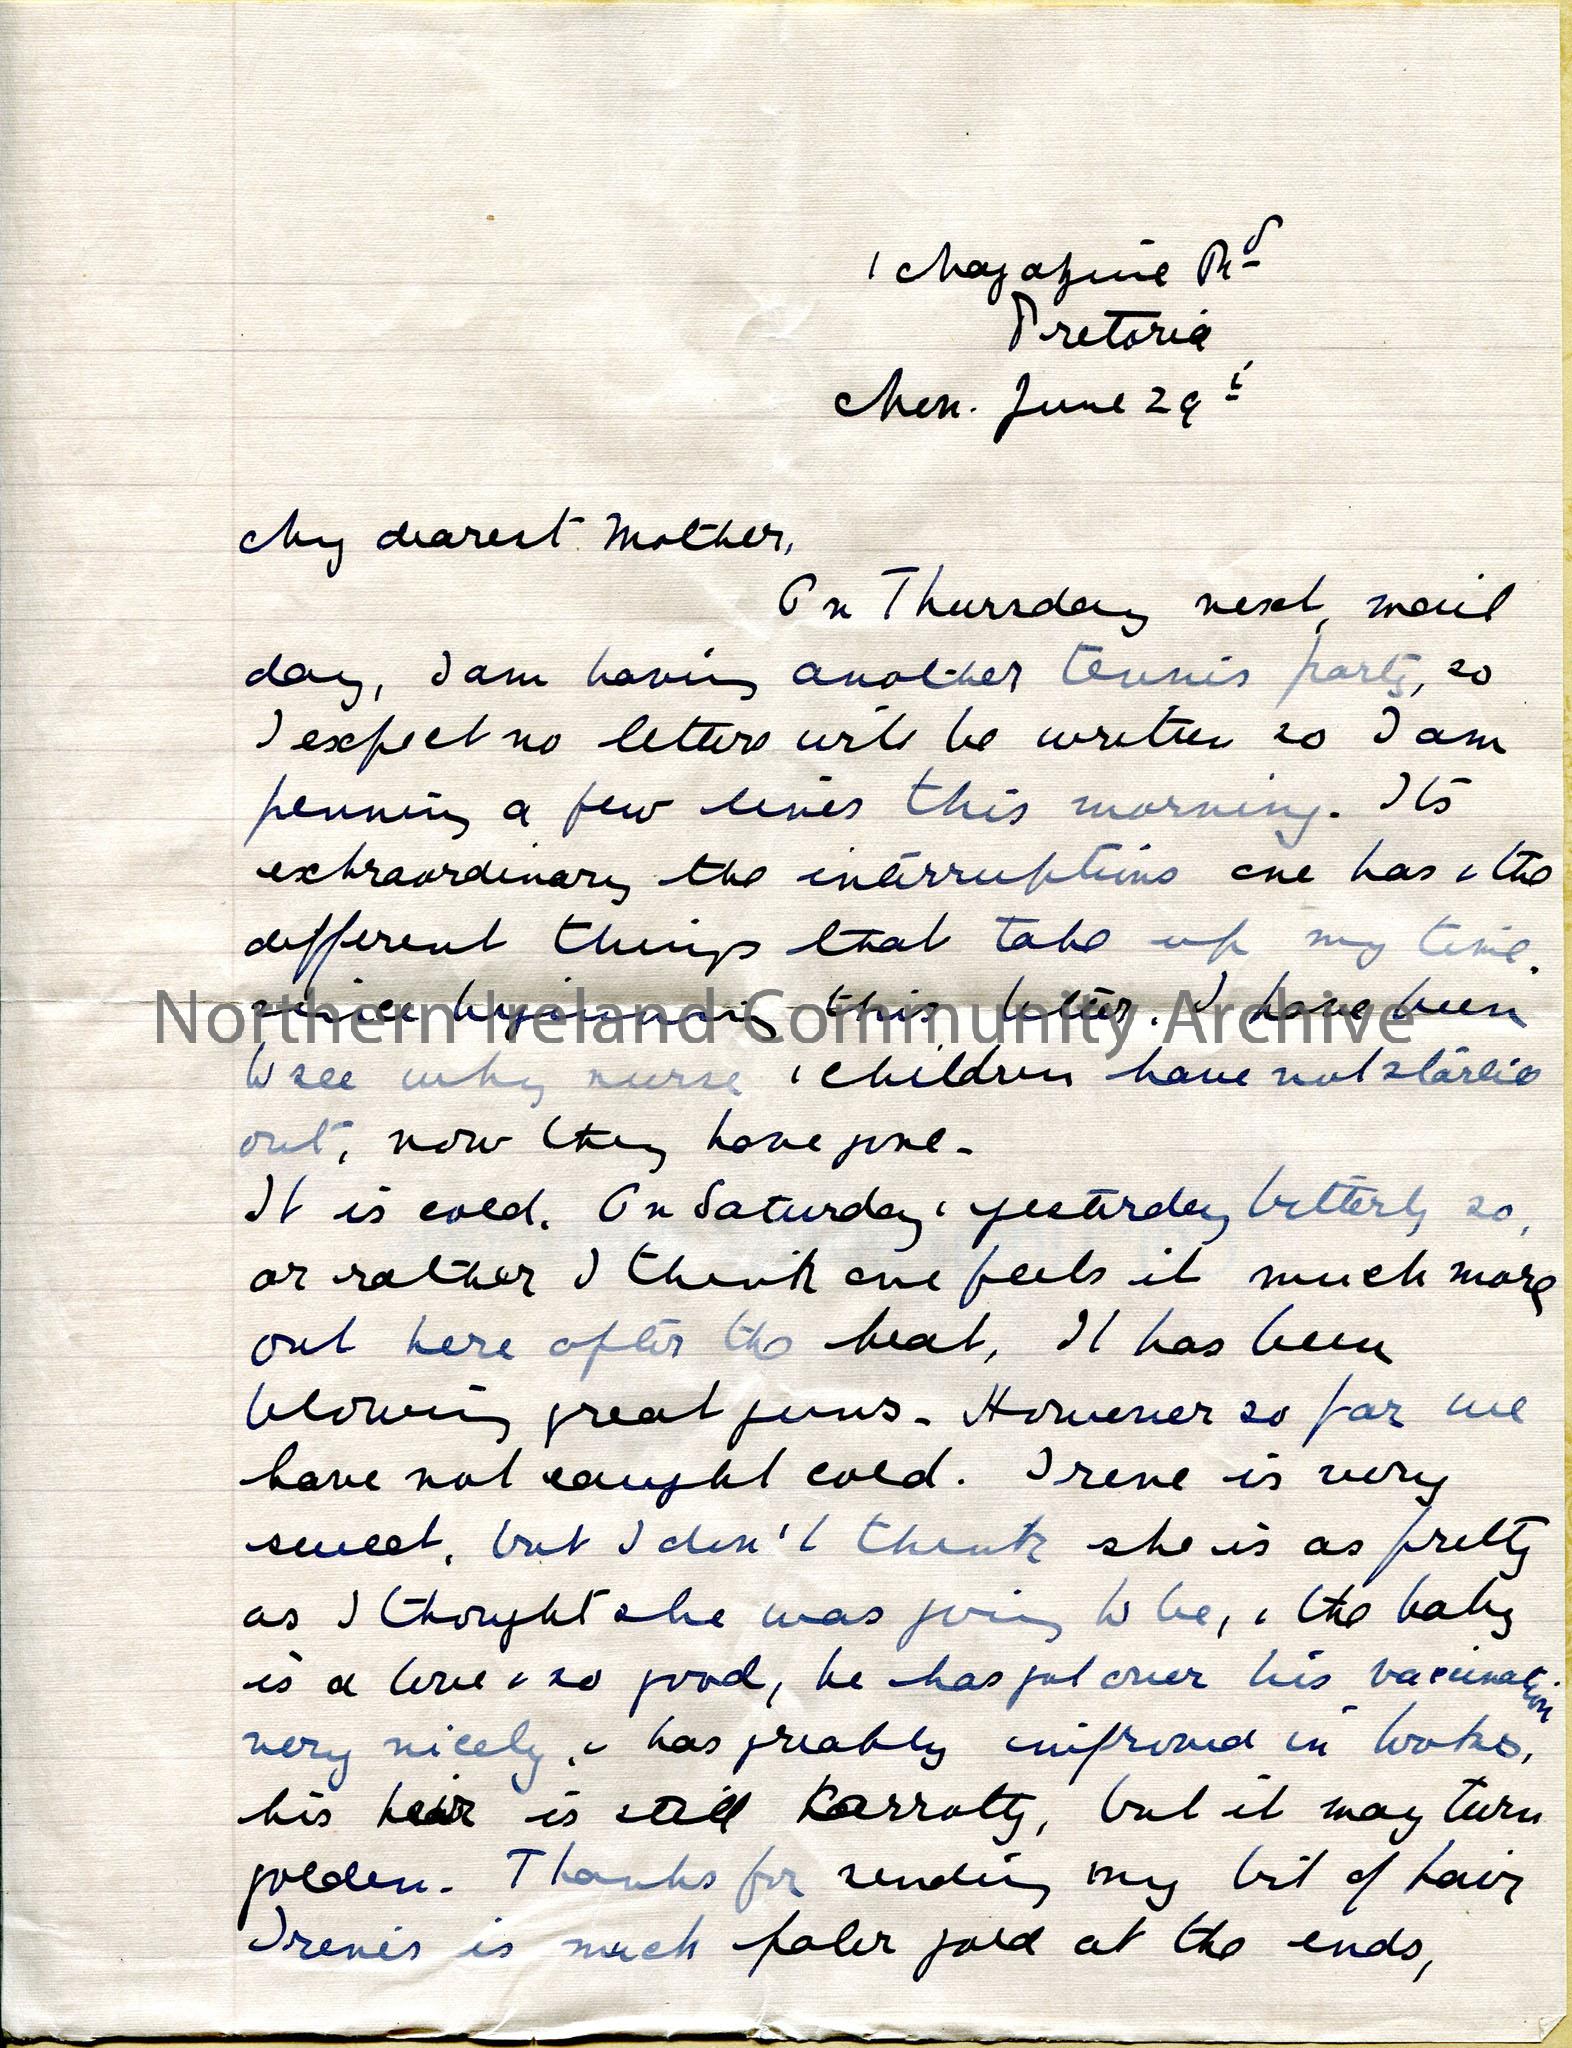 1 Magazine Rd
Pretoria
Mon. June 29t
My dearest Mother,
On Thursday next, mail
day, I am having another tennis party, so
I expect no letters will be written so I am
penning a few lines this morning. Its
extraordinary the interruptions one has & the
different things that take up my time.
since beginning this letter. I have been
Northern Ireland Community Archive
to see why nurse & children have not started
out, now they have gone.
It is cold. On Saturday & yesterday bitterly so,
or rather I think one feels it much more
out here after the heat, It has been
blowing great guns. However so far we
have not caught cold. Irene is very
sweet, but I don't think she is as pretty
as I thought she was going to be, & the baby
is a love & so good, he has got over his vaccination
very nicely, & has greatly improved in looks,
his hair is still Karrotty, but it may turn
golden. Thanks for sending my bit of hair
Irenes is much paler gold at the ends,